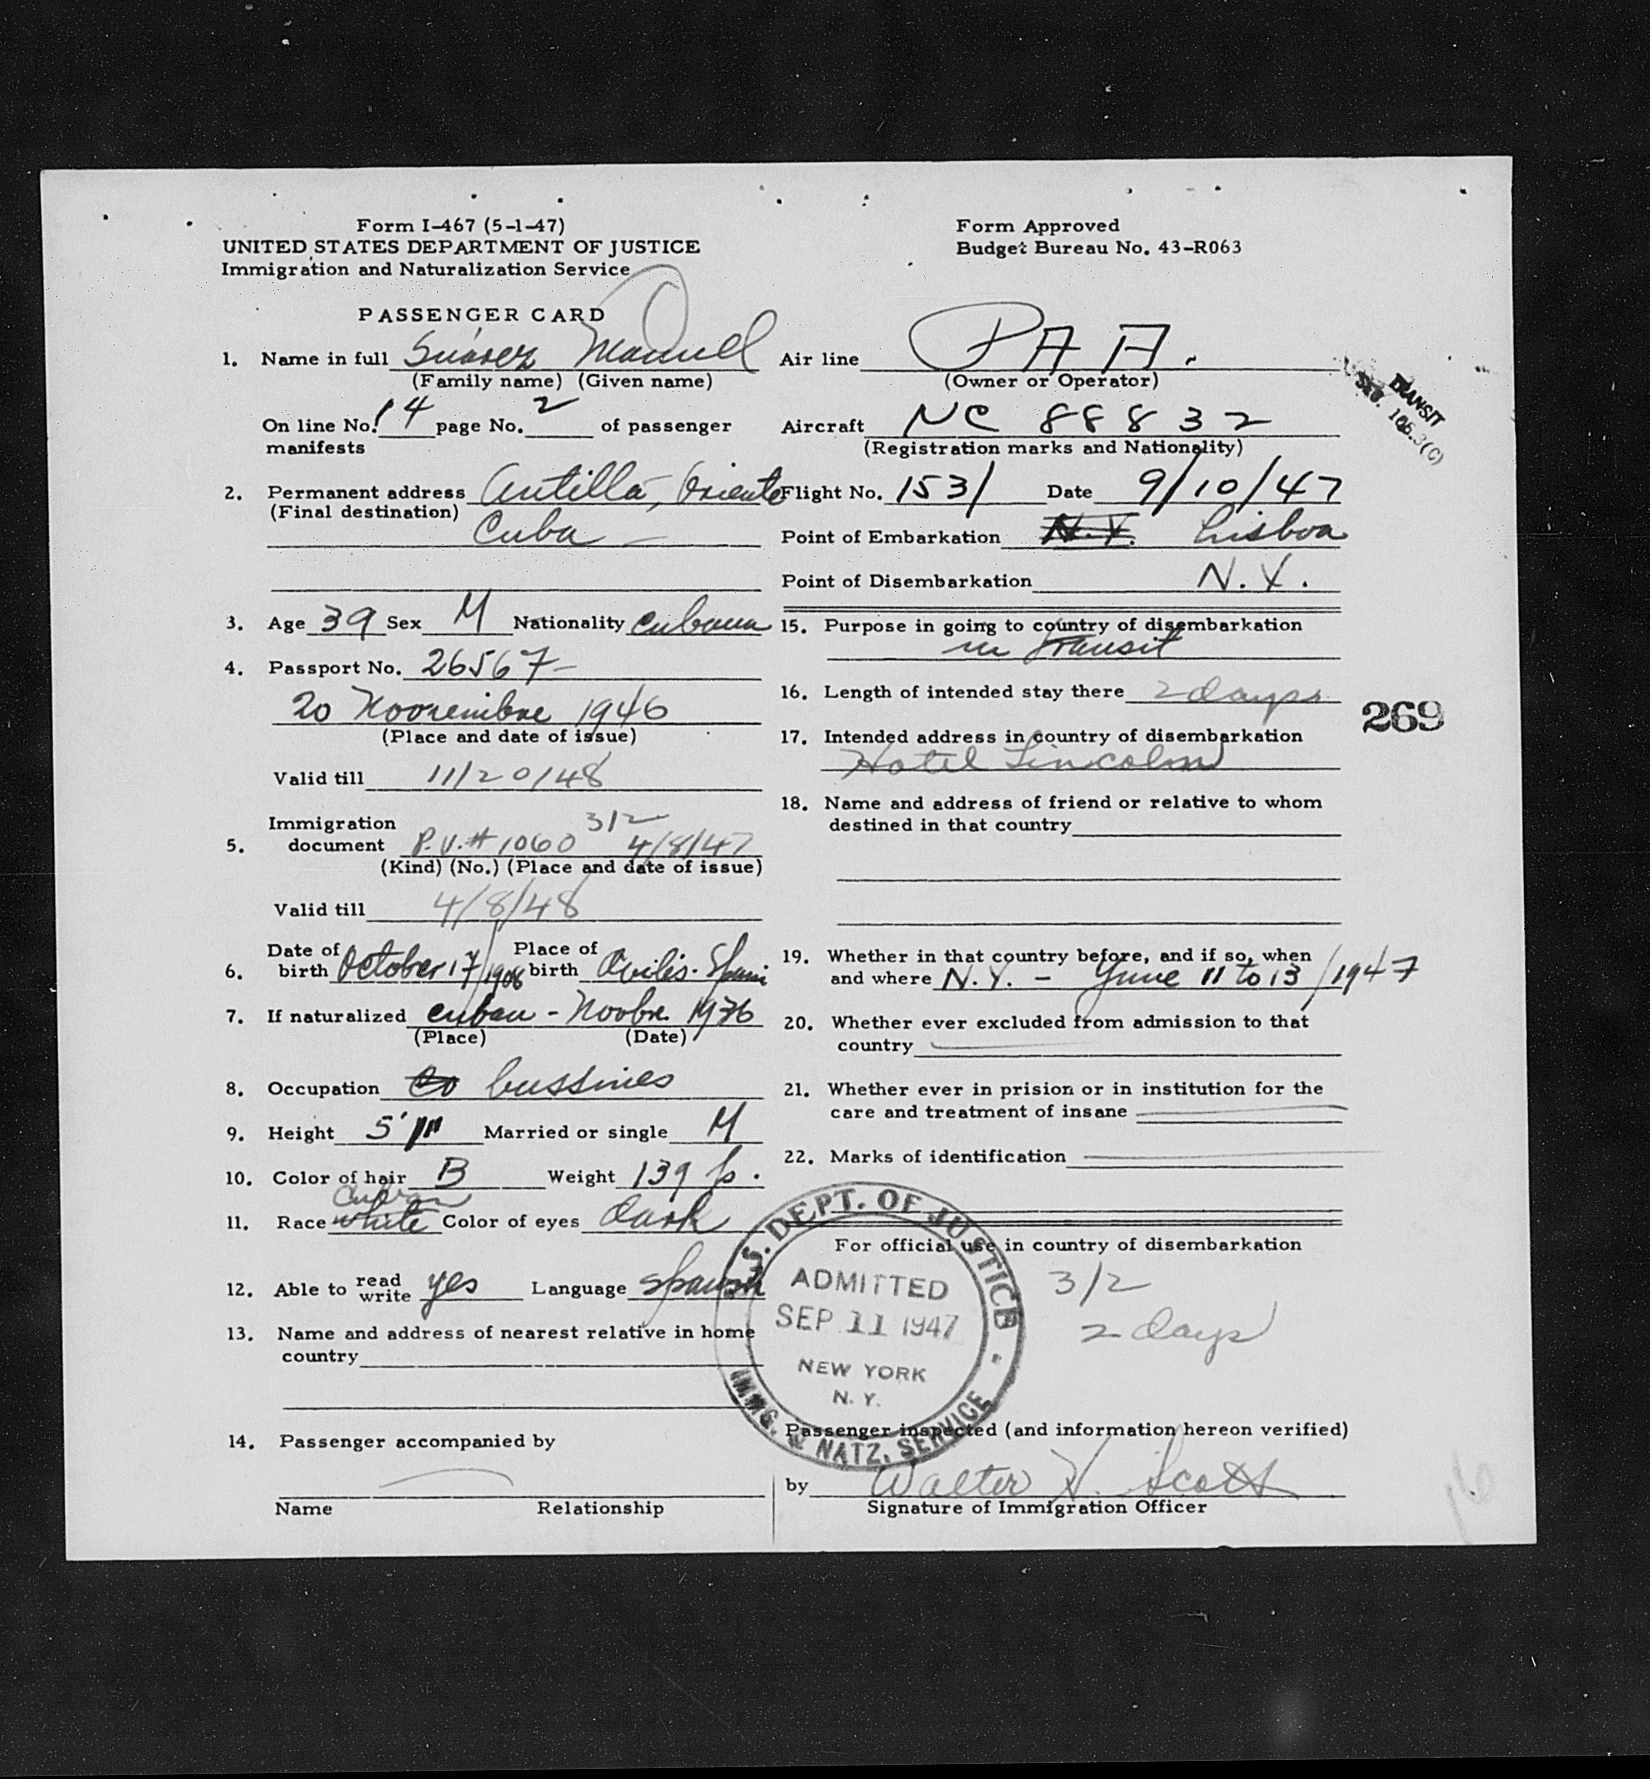 Form I-467 (5-1-47)
UNITED STATES DEPARTMENT OF JUSTICE
Immigration and Naturalization Service
Form Approved
Budget Bureau No. 43-R063
PASSENGER CARD
1. Name in full Suárez Manuel
(Family name) (Given name)
On line No. 14 page No. 2 of passenger
manifests
2. Permanent address Antilla, Oriente
(Final destination)
Cuba
3. Age 39 Sex M Nationality Cubana
4. Passport No. 26567-
20 Noviembre 1946
(Place and date of issue)
Valid till 11/20/48
Immigration 3/2
5. document P.V.# 1060 4/8/47
(Kind) (No.) (Place and date of issue)
Valid till 4/8/48
6. Date of birth October 17/1908 Place of birth Avilés. Spain
7. If naturalized Cuban - Novbre. 1936
(Place) (Date)
8. Occupation Co bussines
9. Height 5' Married or single M
10. Color of hair B Weight 139 lb.
Cuban
11. Race white Color of eyes dark
12. Able to read write yes Language Spanish
13. Name and address of nearest relative in home
country
14. Passenger accompanied by
Name Relationship
Air line PAA.
(Owner or Operator)
Aircraft NC 88832
(Registration marks and Nationality)
Flight No. 153/ Date 9/10/47
Point of Embarkation N.Y. Lisboa
Point of Disembarkation N.Y.
15. Purpose in going to country of disembarkation
in transit
16. Length of intended stay there 2 days
17. Intended address in country of disembarkation
Hotel Lincoln
18. Name and address of friend or relative to whom
destined in that country
19. Whether in that country before, and if so, when
and where N.Y. - June 11 to 13/1947
20. Whether ever excluded from admission to that
country
21. Whether ever in prision or in institution for the
care and treatment of insane
22. Marks of identification
For official use in country of disembarkation
3/2
2 days
Passenger inspected (and information hereon verified)
by Walter H. Scott
Signature of Immigration Officer
U.S. DEPT. OF JUSTICE
ADMITTED
SEP 11 1947
NEW YORK
N.Y.
IMMG. & NATZ. SERVICE
TRANSIT
269
16